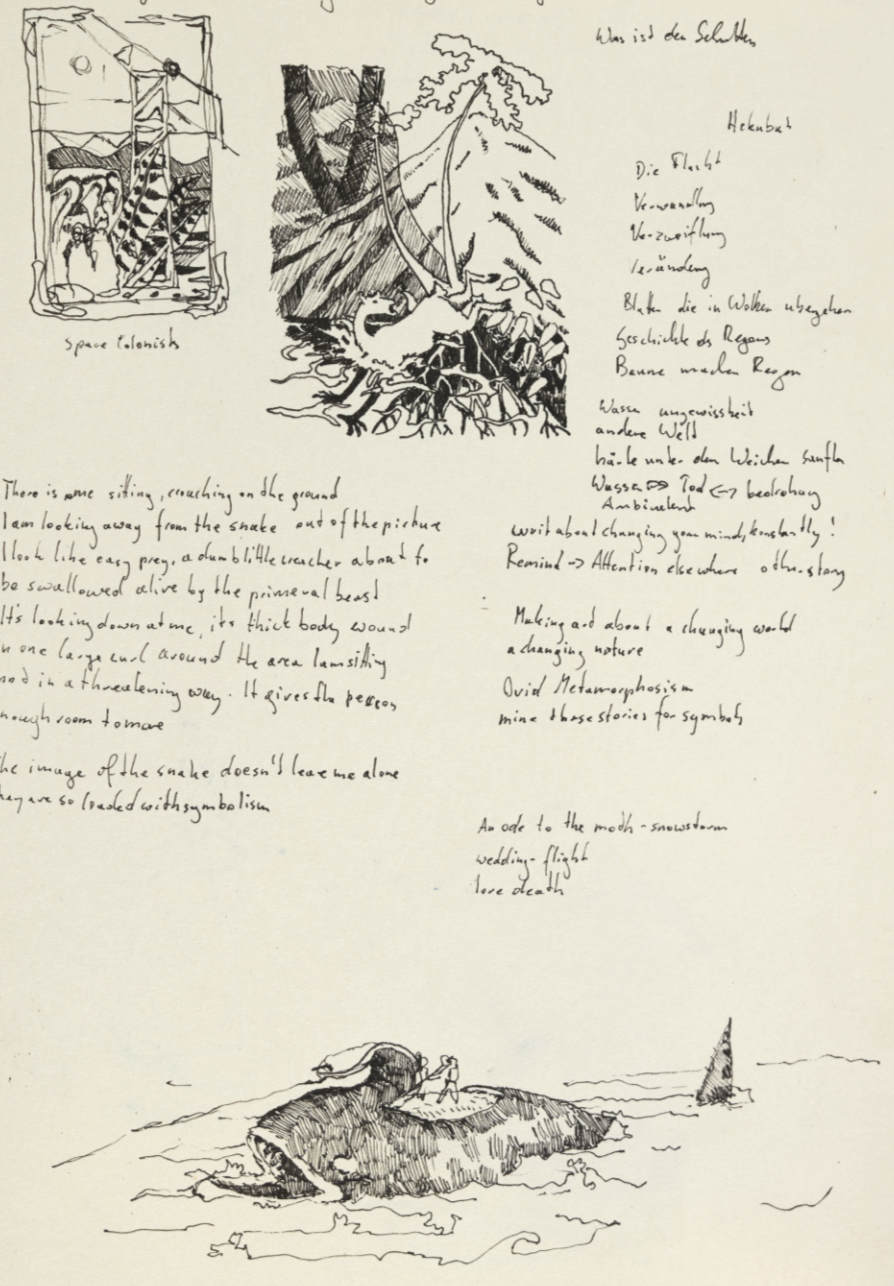 Space Colonists
Was ist der Schatten
Hekuba
Die Flucht
Verwandlung
Verzweiflung
Blatter die in Wolken ubergehen
Geschichte des Regens
Baume machen Regen
Wasser ungewissheit
andere Welt
härte unter dem Weichen Sanften
Wasser <=> Tod <-> bedrohung
Ambivalent
about changing your mind, konstantly!
Remind -> Attention elsewhere other story
Making art about a changing world
a changing nature
Ovid Metamorphosism
mine those stories for symbols
An ode to the moth-snowstorm
wedding-flight
love death
There is me sitting, crouching on the ground
I am looking away from the snake out of the picture
I look like easy prey, a dumb little creacher about to
be swallowed alive by the primeval beast
It's looking down at me, its thick body wound
in one large curl around the area I am sitting
in a threatening way. It gives the person
enough room to move
The image of the snake doesn't leave me alone
they are so loaded with symbolism